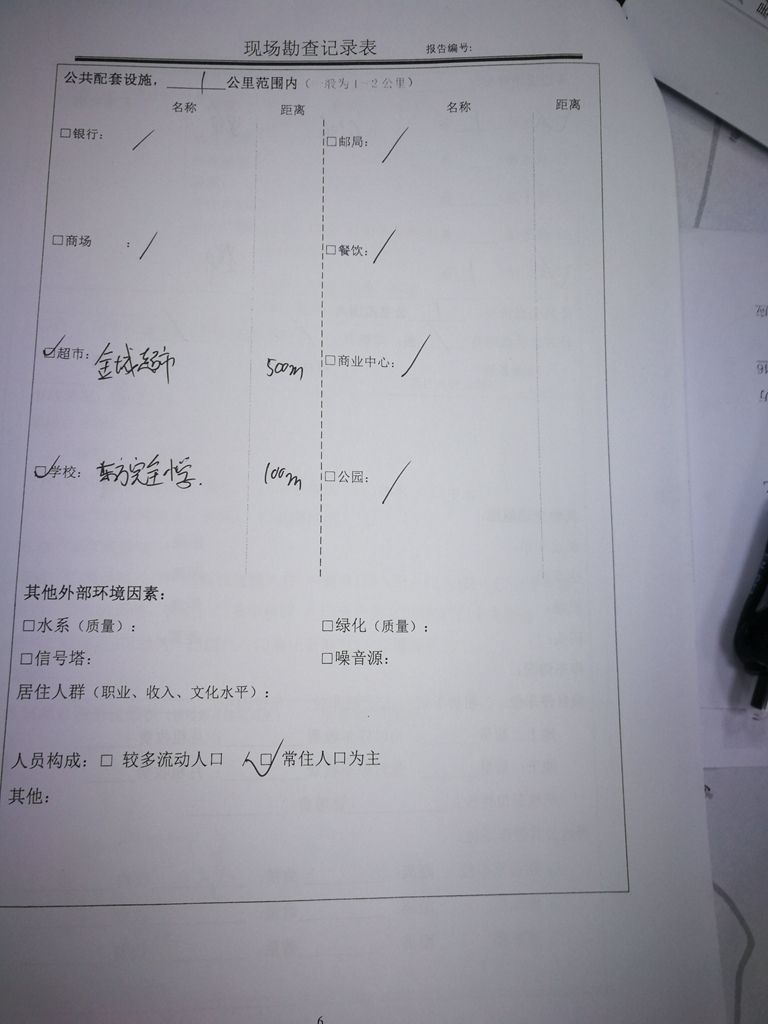 现场勘查记录表 报告编号:
公共配套设施，1公里范围内（一般为1~2公里）
名称 距离 名称 距离
□银行： / □邮局： /
□商场 ： / □餐饮： /
☑超市：金域超市 500m □商业中心： /
☑学校：东方完全小学. 100m □公园： /
其他外部环境因素：
□水系（质量）： □绿化（质量）：
□信号塔： □噪音源：
居住人群（职业、收入、文化水平）：
人员构成：□ 较多流动人口 ☑ 常住人口为主
其他：
6